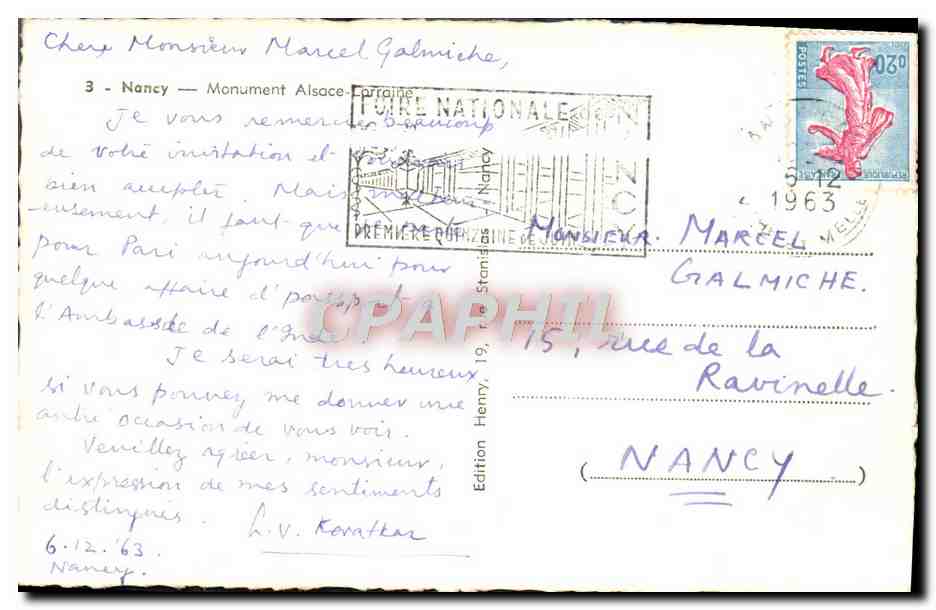 Chere Monsieur Marcel Galmiche,
3 - Nancy — Monument Alsace-Lorraine
Je vous remercie beaucoup
de votre invitation et
bien accepter Mais malheur-
eusement, il faut que je parte
pour Pari aujourd'hui pour
quelque affaire d'passport à
l'Ambassade de l'Inde
Je serai tres heureux
si vous pouvez me donner une
autre occasion de vous voir.
Veuillez agréer, monsieur,
l'expression de mes sentiments
distingués.
L.V. Koratkar
6.12.'63.
Nancy.
Edition Henry, 19, rue Stanislas - Nancy
FOIRE NATIONALE
NANCY
PREMIERE QUINZAINE DE JUIN
0,20
POSTES
REPUBLIQUE FRANÇAISE
6-12
1963
MONSIEUR. MARCEL
GALMICHE.
15, rue de la
Ravinelle.
(NANCY)
CPAPHIL